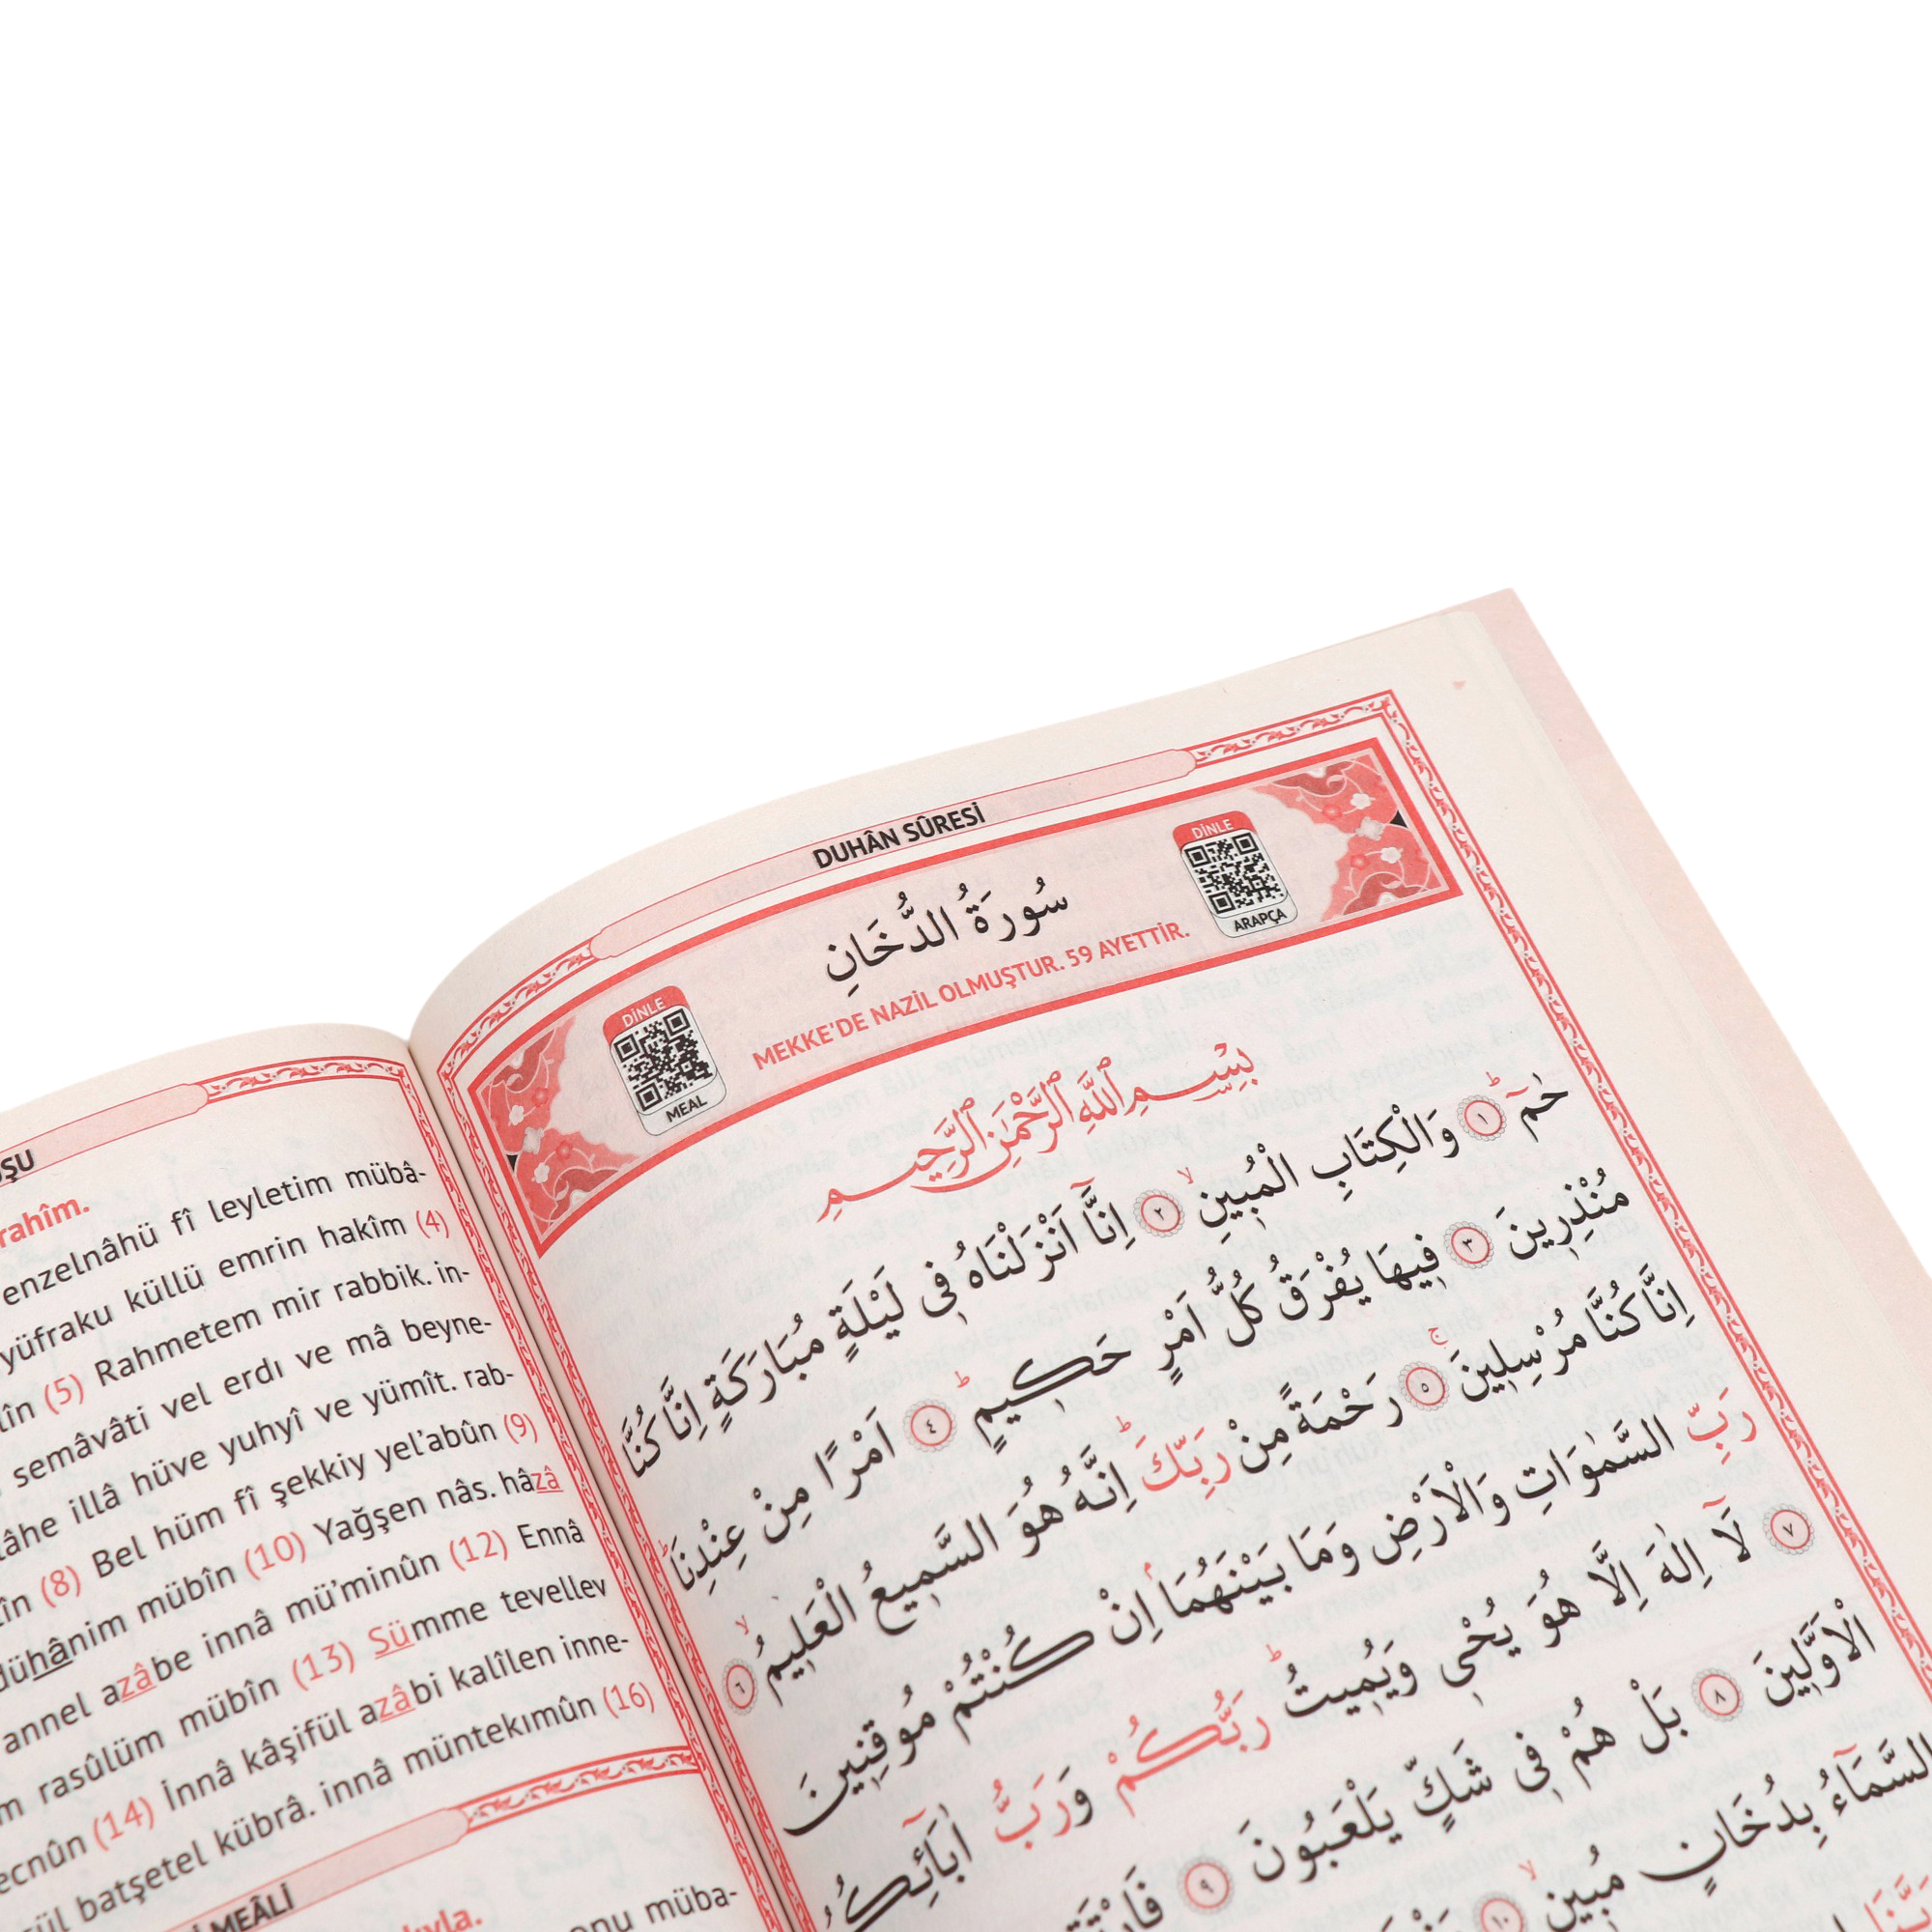 ŞU
rahîm.
enzelnâhü fî leyletim mübâ-
yüfraku küllü emrin hakîm (4)
lîn (5) Rahmetem mir rabbik. in-
semâvâti vel erdı ve mâ beyne-
lâhe illâ hüve yuhyî ve yümît. rab-
în (8) Bel hüm fî şekkiy yel'abûn (9)
dühânim mübîn (10) Yağşen nâs. hâzâ
annel azâbe innâ mü'minûn (12) Ennâ
m rasûlüm mübîn (13) Sümme tevellev
ecnûn (14) İnnâ kâşifül azâbi kalîlen inne-
ül batşetel kübrâ. innâ müntekımûn (16)
MEÂLİ
onu müba-
DUHÂN SÛRESİ
سُورَةُ الدُّخَانِ
MEKKE'DE NAZİL OLMUŞTUR. 59 AYETTİR.
DİNLE
ARAPÇA
DİNLE
MEAL
بِسْمِ اللّٰهِ الرَّحْمٰنِ الرَّحِيمِ
حٰمٓ ۜ ﴿١﴾ وَالْكِتَابِ الْمُبِينِ ۙ ﴿٢﴾ اِنَّٓا اَنْزَلْنَاهُ فِي لَيْلَةٍ مُبَارَكَةٍ اِنَّا كُنَّا
مُنْذِرِينَ ﴿٣﴾ فِيهَا يُفْرَقُ كُلُّ اَمْرٍ حَكِيمٍ ۜ ﴿٤﴾ اَمْرًا مِنْ عِنْدِنَا ۜ
اِنَّا كُنَّا مُرْسِلِينَ ۚ ﴿٥﴾ رَحْمَةً مِنْ رَبِّكَ ۜ اِنَّهُ هُوَ السَّمِيعُ الْعَلِيمُ ۙ ﴿٦﴾
رَبِّ السَّمٰوَاتِ وَالْاَرْضِ وَمَا بَيْنَهُمَا ۢ اِنْ كُنْتُمْ مُوقِنِينَ
﴿٧﴾ لَٓا اِلٰهَ اِلَّا هُوَ يُحْيِ وَيُمِيتُ ۜ رَبُّكُمْ وَرَبُّ اٰبَٓائِكُ
الْاَوَّلِينَ ﴿٨﴾ بَلْ هُمْ فِي شَكٍّ يَلْعَبُونَ ﴿٩﴾
السَّمَٓاءُ بِدُخَانٍ مُبِينٍ ۙ ﴿١٠﴾